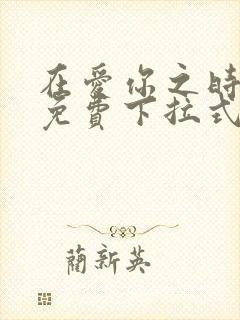 在愛你之時
免費下拉式
藺新英